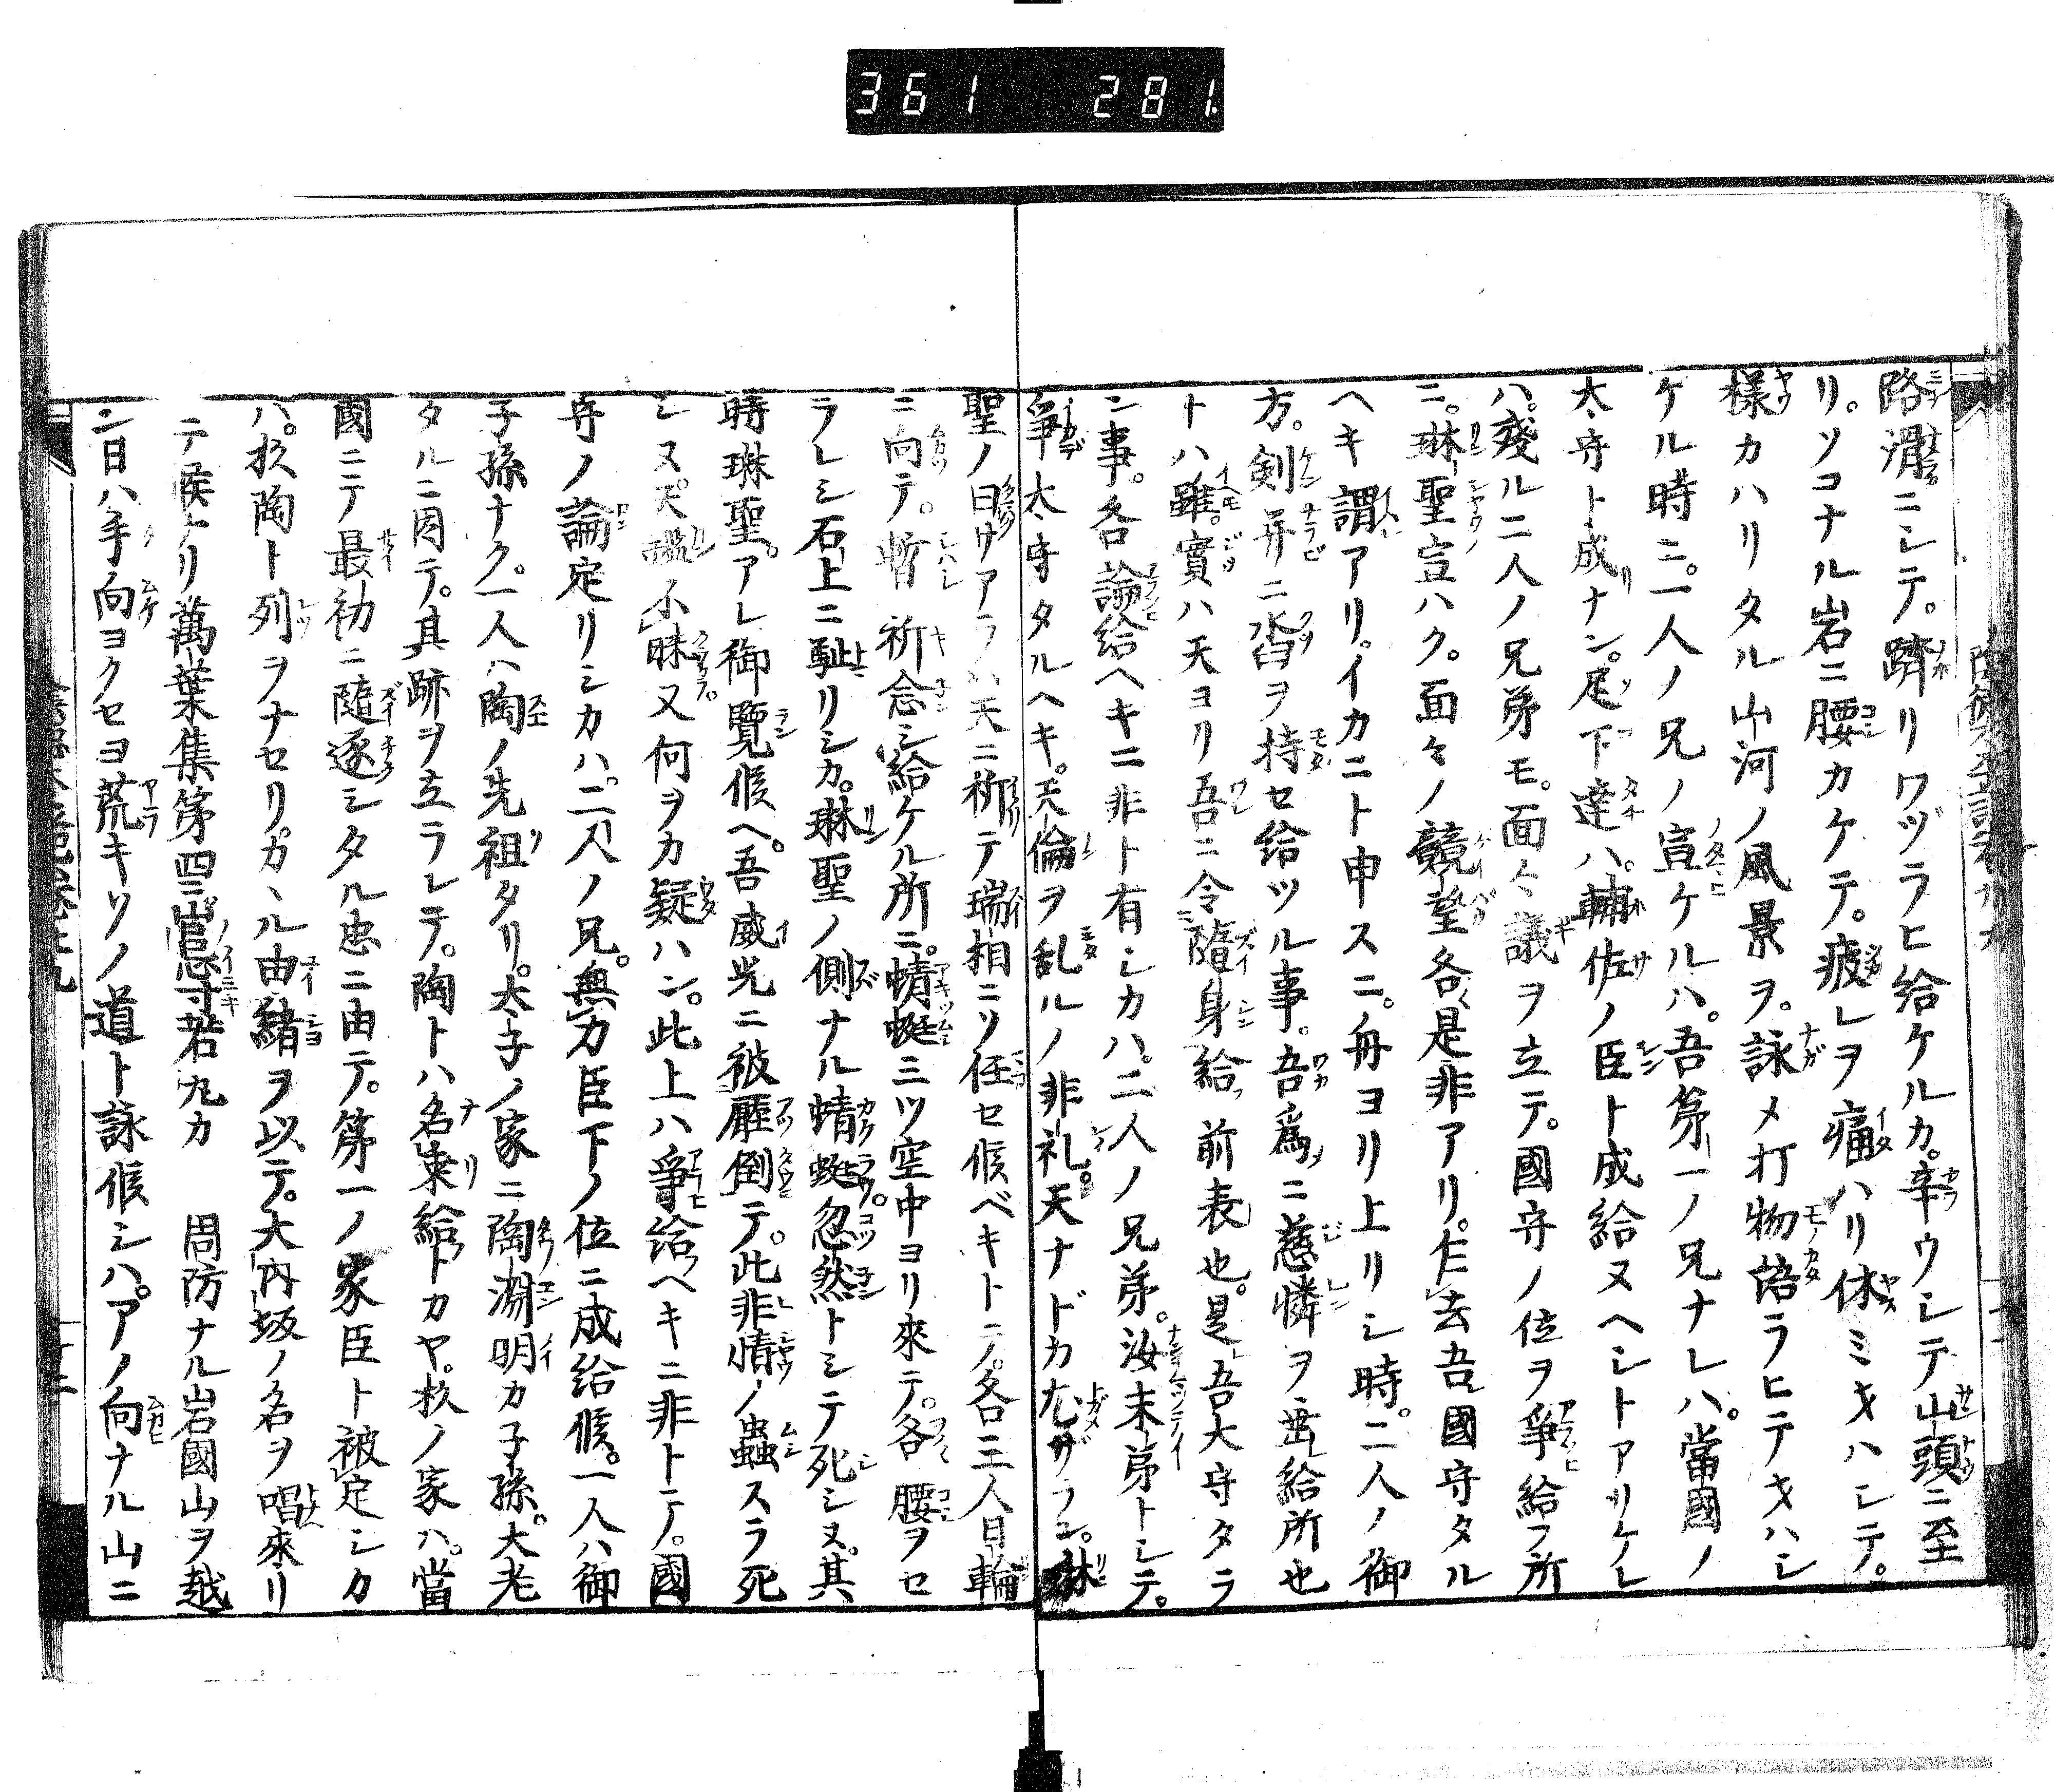 361 281
路滑ニシテ。躋リワヅラヒ給ケルカ。辛ウシテ山頭ニ至
リ。ソコナル岩ニ腰カケテ。疲レヲ痛ハリ休ミキハシテ。
様カハリタル山河ノ風景ヲ。詠メ打物語ラヒテキハシ
ケル時ニ。一人ノ兄ノ宣ケルハ。吾第一ノ兄ナレハ。當國ノ
太守ト成ナン。足下達ハ。輔佐ノ臣ト成給ヌヘシトアリケレ
ハ。殘ル二人ノ兄弟モ。面々議ヲ立テ。國守ノ位ヲ爭給フ所
ニ。琳聖宣ハク。面々ノ競望各是非アリ。仁去吾國守タル
ヘキ謂アリ。イカニト申スニ。舟ヨリ上リシ時。二人ノ御
方。剣并ニ沓ヲ持セ給ツル事。吾爲ニ慈憐ヲ垂給所也
トハ雖。實ハ天ヨリ吾ニ令隨身給前表也。是吾大守タラ
ン事。各論給ヘキニ非ト有シカハ。二人ノ兄弟。汝末弟トシテ。
爭太守タルヘキ。天倫ヲ乱ルノ非礼。天ナドカ尤ザラン。琳
聖ノ曰サアラハ天ニ祈テ瑞相ニソ任セ候ベキトテ。各三人日輪
ニ向テ。暫祈念シ給ケル所ニ。蜻蜓三ツ空中ヨリ來テ。各腰ヲセ
ラレシ石上ニ駐リシカ。琳聖ノ側ナル蜻蜓忽然トシテ死シヌ。其
時琳聖。アレ御覽候ヘ。吾威光ニ被壓倒テ。此非情ノ蟲スラ死
シヌ。天鑑不昧又何ヲカ疑ハン。此上ハ爭給ヘキニ非トテ。國
守ノ論定リシカハ。二人ノ兄。無力臣下ノ位ニ成給候。一人ハ御
子孫ナク。一人ハ陶ノ先祖タリ。太子ノ家ニ陶淵明カ子孫。大老
タルニ因テ。其跡ヲ立ラレテ。陶トハ名乗給トカヤ。杉ノ家ハ。當
國ニテ最初ニ隨逐シタル忠ニ由テ。第一ノ家臣ト被定シカ
ハ。杉陶ト列ヲナセリ。カヽル由緒ヲ以テ。大内坂ノ名ヲ唱來リ
テ候ナリ萬葉集第四ニ 忌寸若九カ 周防ナル岩國山ヲ越
ン日ハ手向ヨクセヨ荒キソノ道ト詠候シハ。アノ向ナル山ニ